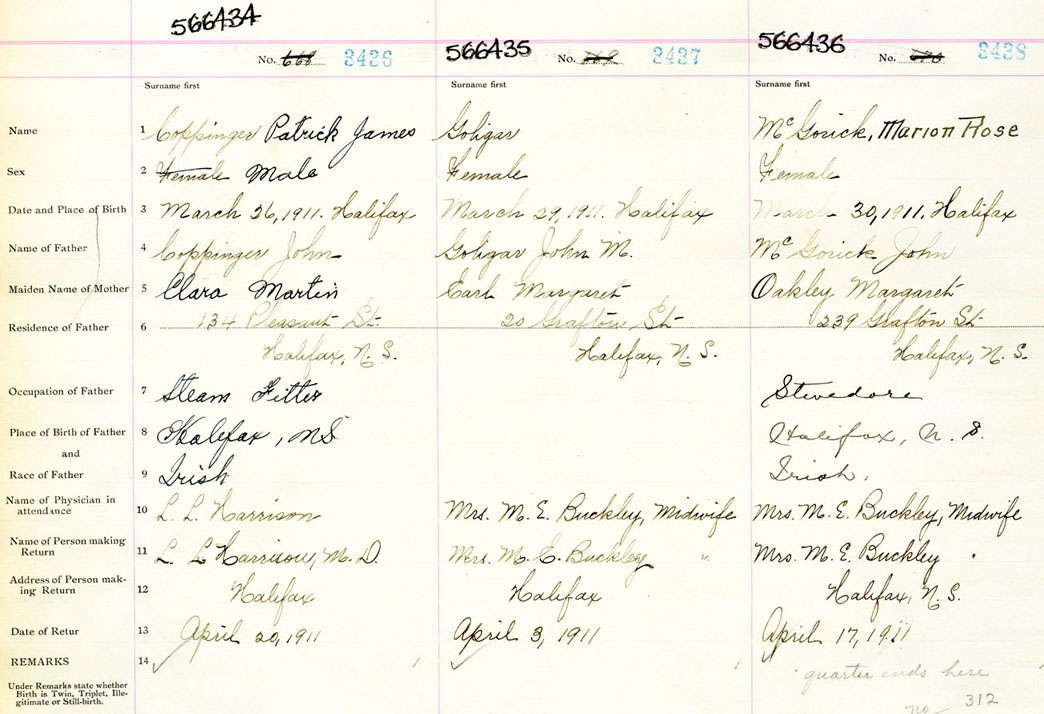 566434 566435 566436
No. 668 3436 No. 669 3437 No. 3438
Surname first Surname first Surname first
Name 1 Coppinger Patrick James Goligar Mc Gorick, Marion Rose
Sex 2 Female Male Female Female
Date and Place of Birth 3 March 26, 1911. Halifax March 29, 1911. Halifax March 30, 1911. Halifax
Name of Father 4 Coppinger John Goligar John M. Mc Gorick John
Maiden Name of Mother 5 Clara Martin Earl Margaret Oakley Margaret
Residence of Father 6 134 Pleasant St. 20 Grafton St 239 Grafton St
Halifax, N. S. Halifax, N. S. Halifax, N. S.
Occupation of Father 7 Steam Fitter Stevedore
Place of Birth of Father 8 Halifax, NS Halifax, N. S.
and
Race of Father 9 Irish Irish.
Name of Physician in
attendance 10 L. L. Harrison Mrs. M. E. Buckley, Midwife Mrs. M. E. Buckley, Midwife
Name of Person making
Return 11 L. L Harrison, M. D. Mrs. M. E. Buckley " Mrs. M. E. Buckley
Address of Person mak-
ing Return 12 Halifax Halifax Halifax, N. S.
Date of Retur 13 April 20, 1911 April 3, 1911 April 17, 1911
REMARKS 14
quarter ends here
Under Remarks state whether
Birth is Twin, Triplet, Ille-
gitimate or Still-birth.
no 312